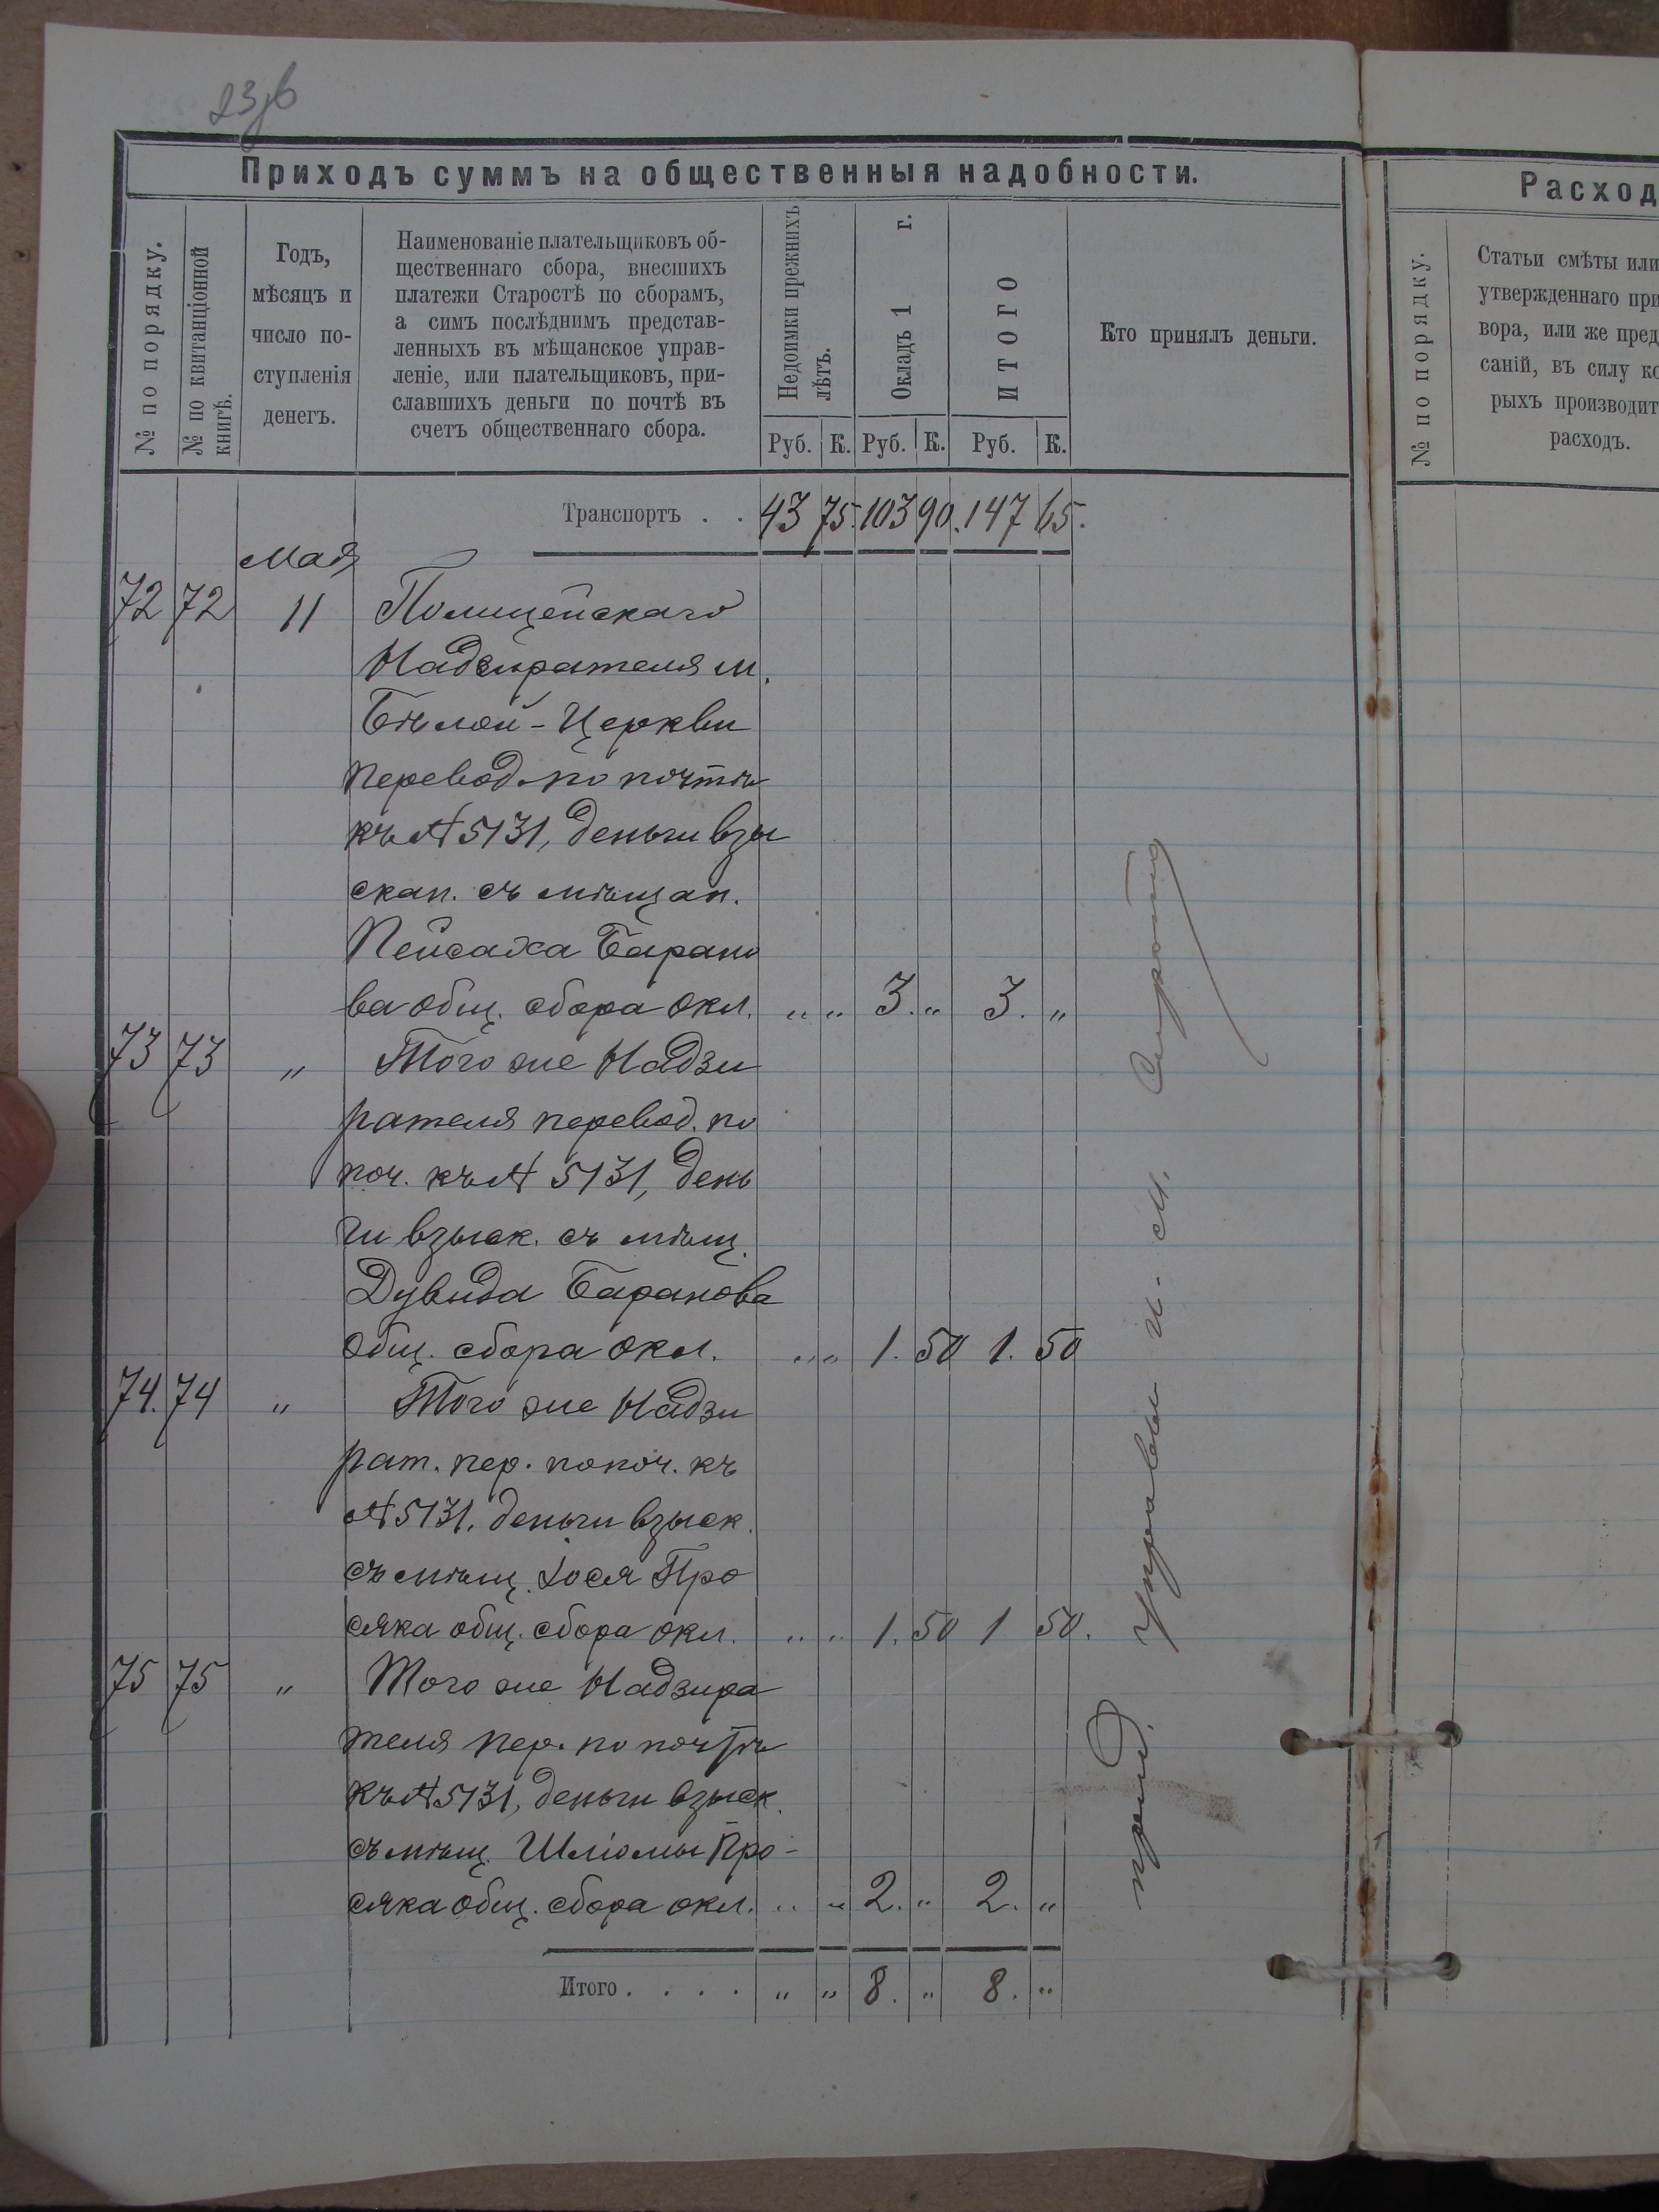 23зв
Приходъ суммъ на общественныя надобности.
№ по порядку.
№ по квитанціонной
книгѣ.
Годъ,
мѣсяцъ и
число по-
ступленія
денегъ.
Наименованіе плательщиковъ об-
щественнаго сбора, внесшихъ
платежи Старостѣ по сборамъ,
а симъ послѣднимъ представ-
ленныхъ въ мѣщанское управ-
леніе, или плательщиковъ, при-
славшихъ деньги по почтѣ въ
счетъ общественнаго сбора.
Недоимки прежнихъ
лѣтъ.
Окладъ 1 г.
ИТОГО
Руб. К. Руб. К. Руб. К.
Кто принялъ деньги.
Транспортъ . . 43 75. 103 90. 147 65.
Мая
72 72 11 Полицейскаго
Надзирателя м.
Бѣлой-Церкви
перевод. по почтѣ
къ № 5131, деньги взы
скан. съ мѣщан.
Пейсаха Барано
ва общ. сбора окл. „ „ 3. „ 3. „
73 73 „ Того же Надзи
рателя перевод. по
поч. къ № 5131, день
ги взыск. съ мѣщ.
Дувида Баранова
общ. сбора окл. „ „ 1. 50 1. 50
74. 74 „ Того же Надзи
рат. пер. по поч. къ
№ 5131, деньги взыск.
съ мѣщ. Іося Про
сяка общ. сбора окл. „ „ 1. 50 1 50.
75 75 „ Того же Надзира
теля пер. по почтѣ
къ № 5131, деньги взыск.
съ мѣщ. Шліомы Про-
сяка общ. сбора окл. „ „ 2. „ 2. „
Итого . . . . „ „ 8. „ 8. „
Управы и. м. Сирота
Расход
№ по порядку.
Статьи смѣты или
утвержденнаго при
вора, или же пред
саній, въ силу ко
рыхъ производит
расходъ.